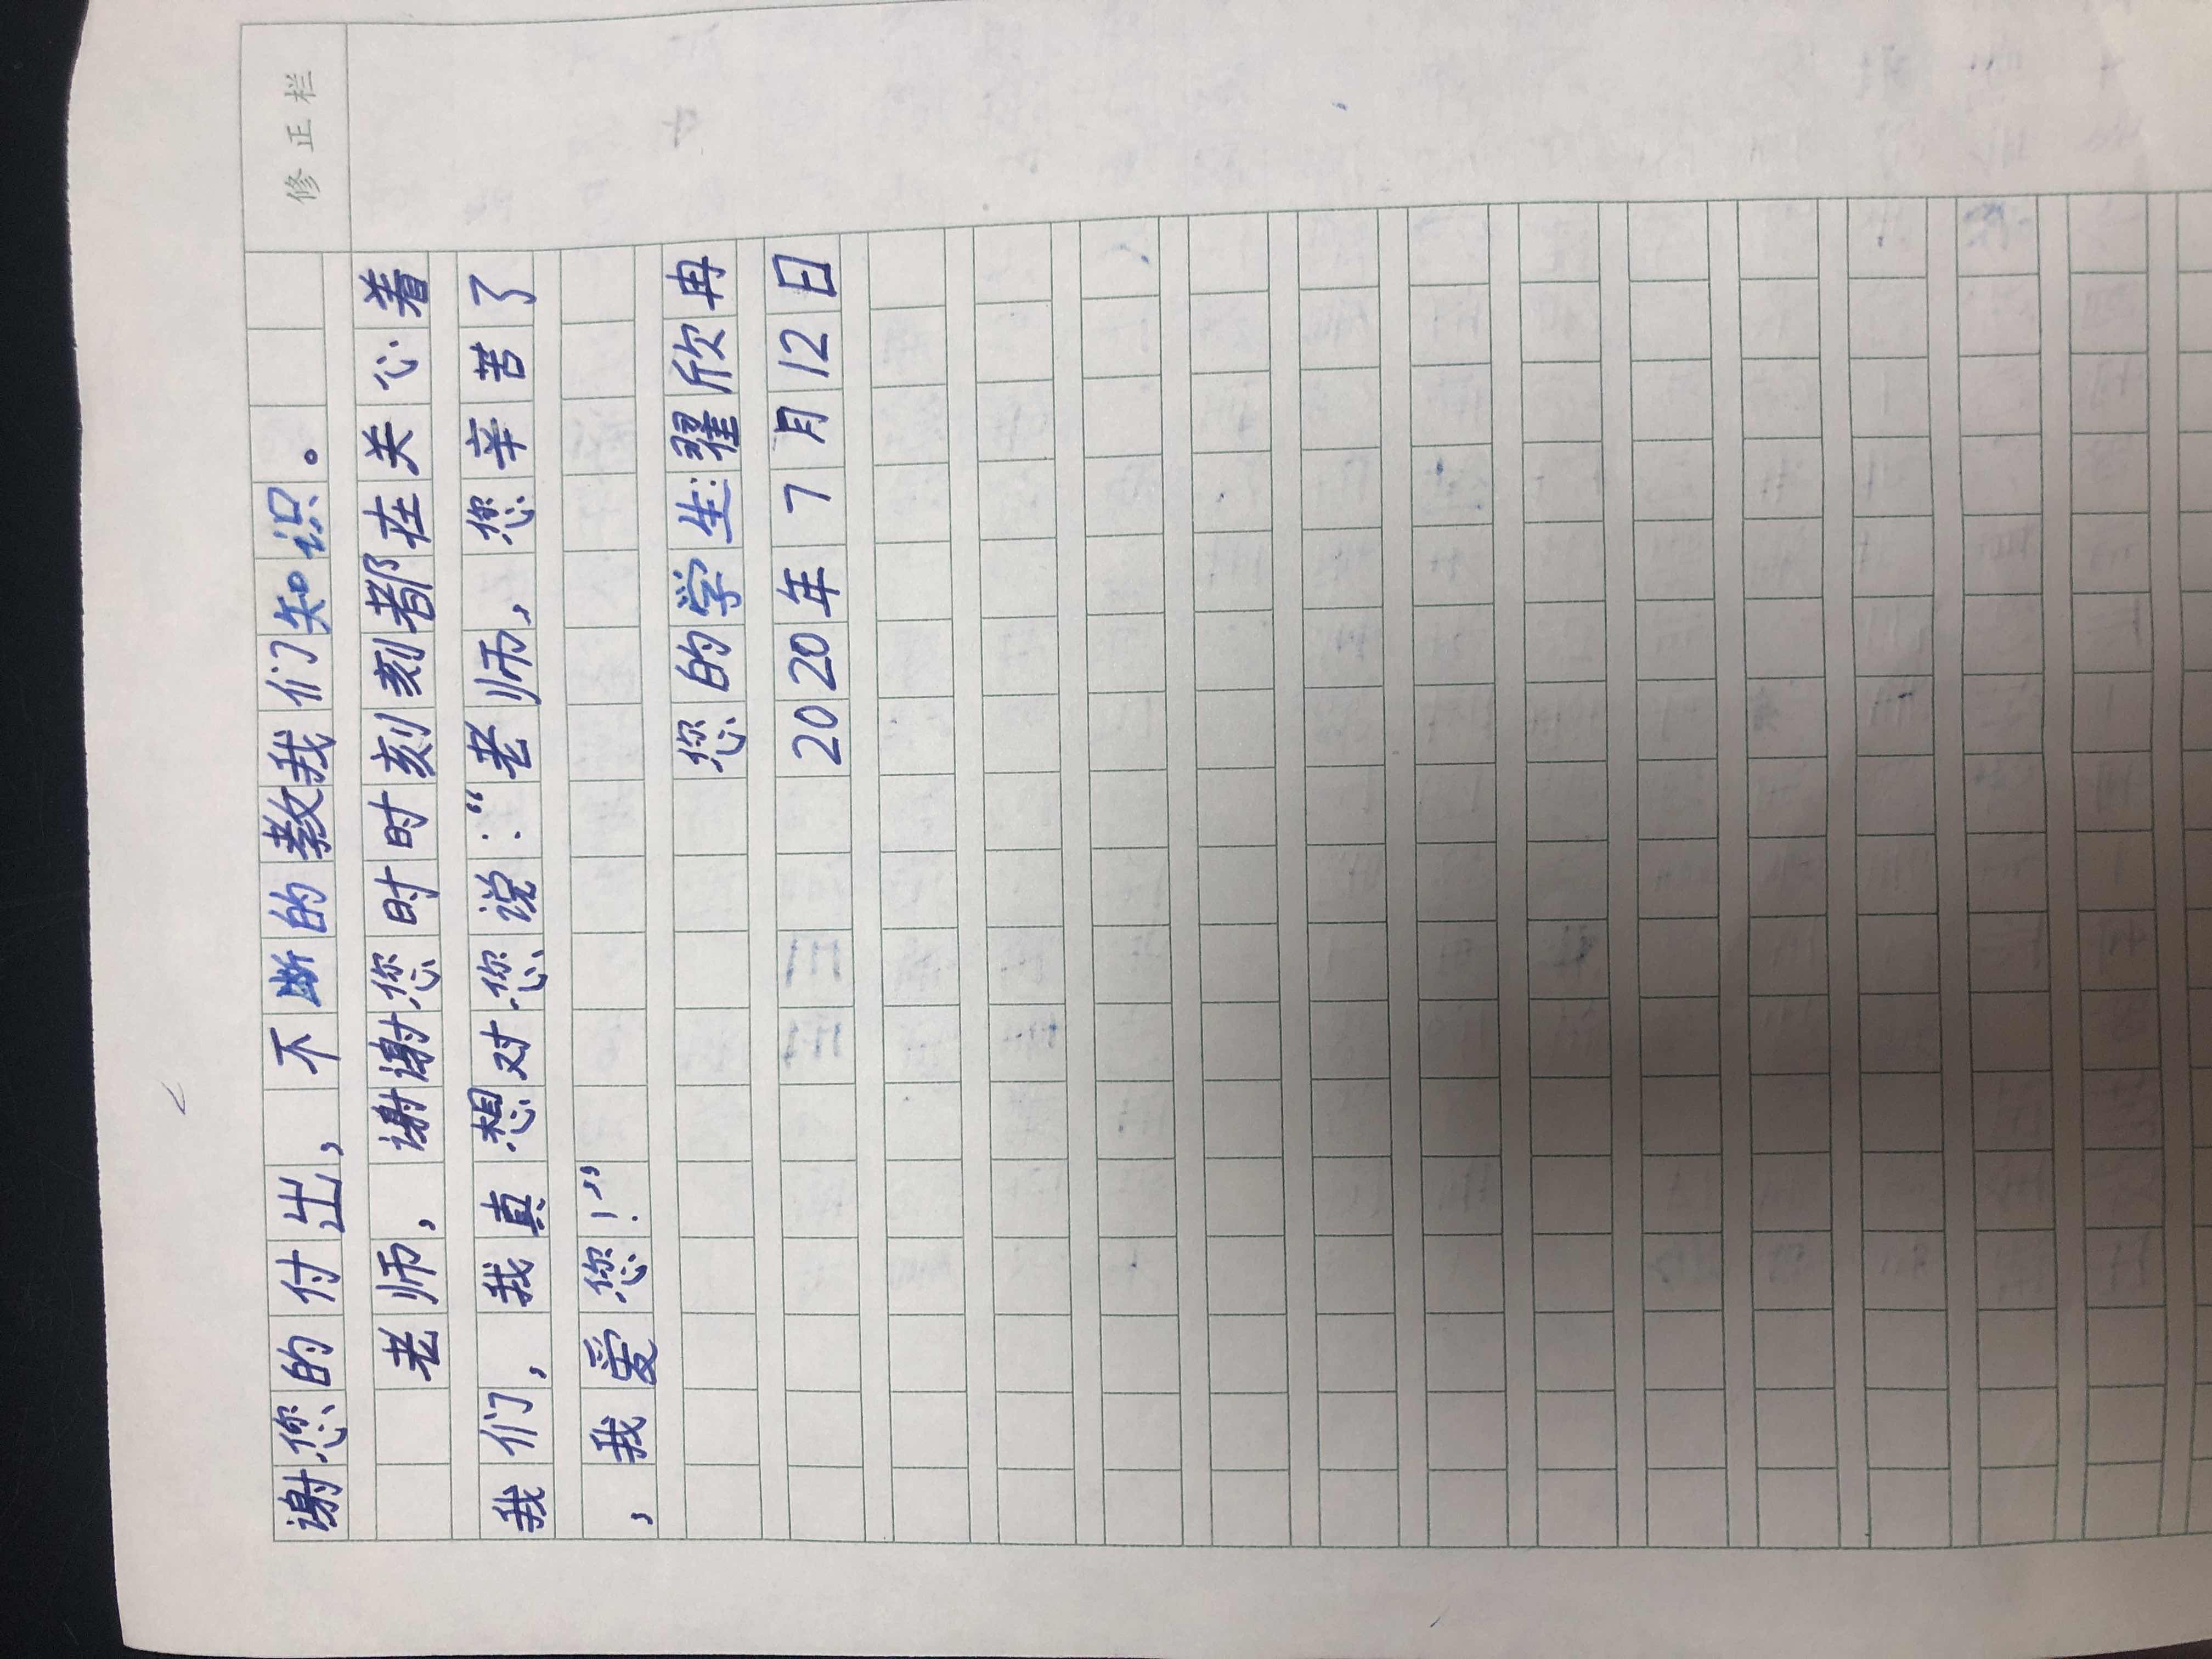 修正栏
谢您的付出，不断的教我们知识。
老师，谢谢您时时刻刻都在关心着
我们，我真想对您说：“老师，您辛苦了
，我爱您！”
您的学生：翟欣冉
2020年7月12日